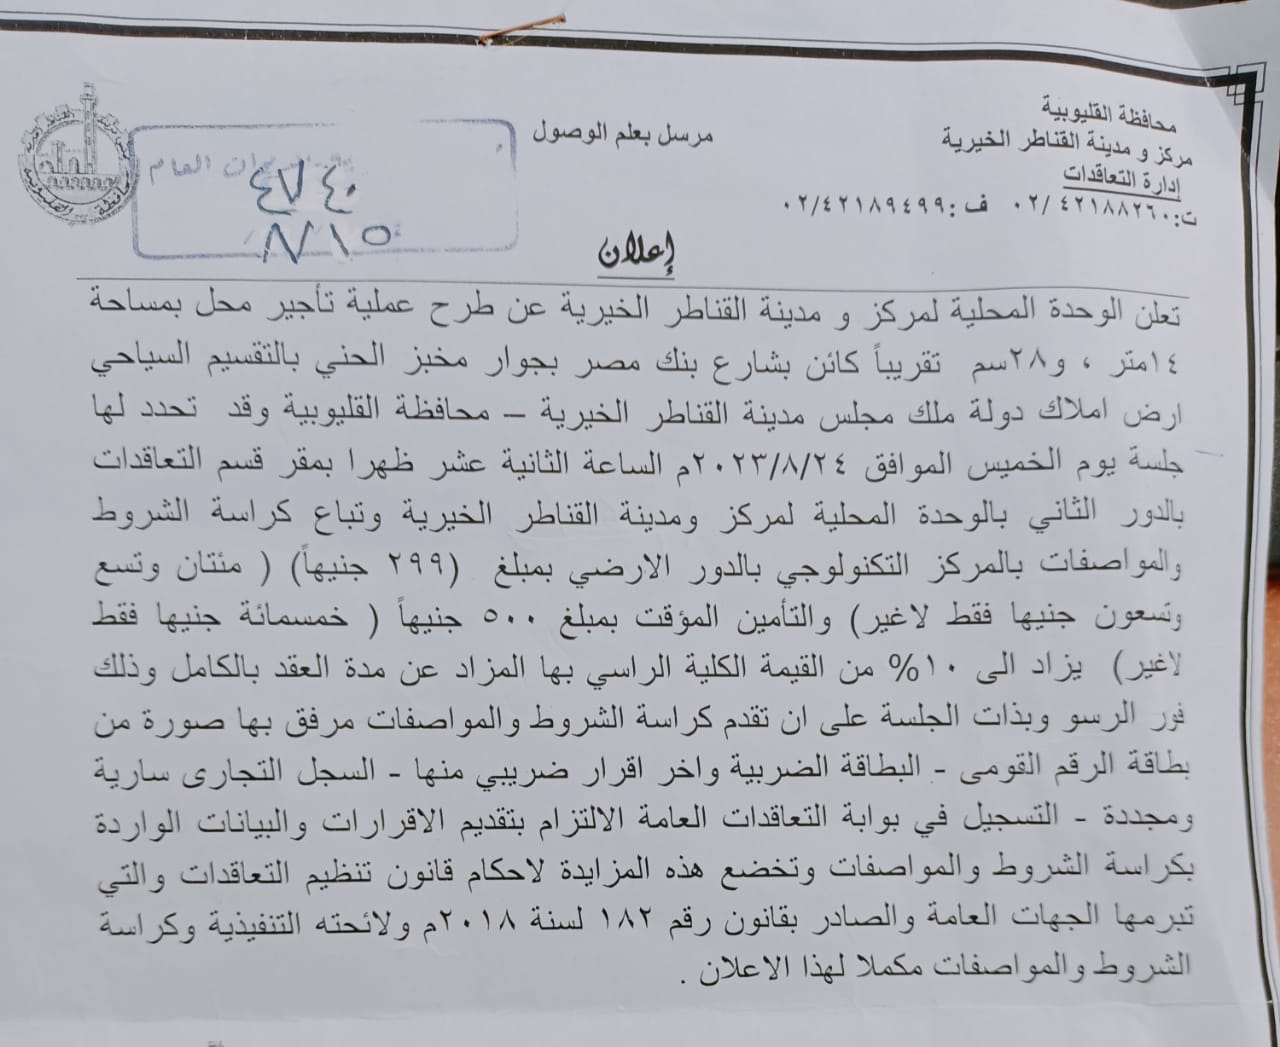 محافظة القليوبية
مركز و مدينة القناطر الخيرية
إدارة التعاقدات
ت: ٠٢/ ٤٢١٨٨٢٦٠ ف :٠٢/٤٢١٨٩٤٩٩
مرسل بعلم الوصول
العام
٤٧٤٠
٨/١٥
إعلان
تعلن الوحدة المحلية لمركز و مدينة القناطر الخيرية عن طرح عملية تأجير محل بمساحة
١٤متر ، و٢٨سم تقريباً كائن بشارع بنك مصر بجوار مخبز الحني بالتقسيم السياحي
ارض املاك دولة ملك مجلس مدينة القناطر الخيرية – محافظة القليوبية وقد تحدد لها
جلسة يوم الخميس الموافق ٢٠٢٣/٨/٢٤م الساعة الثانية عشر ظهرا بمقر قسم التعاقدات
بالدور الثاني بالوحدة المحلية لمركز ومدينة القناطر الخيرية وتباع كراسة الشروط
والمواصفات بالمركز التكنولوجي بالدور الارضي بمبلغ (٢٩٩ جنيهاً) ( مئتان وتسع
وتسعون جنيها فقط لاغير) والتأمين المؤقت بمبلغ ٥٠٠ جنيهاً ( خمسمائة جنيها فقط
لاغير) يزاد الى ١٠% من القيمة الكلية الراسي بها المزاد عن مدة العقد بالكامل وذلك
فور الرسو وبذات الجلسة على ان تقدم كراسة الشروط والمواصفات مرفق بها صورة من
بطاقة الرقم القومى - البطاقة الضربية واخر اقرار ضريبي منها - السجل التجارى سارية
ومجددة - التسجيل في بوابة التعاقدات العامة الالتزام بتقديم الاقرارات والبيانات الواردة
بكراسة الشروط والمواصفات وتخضع هذه المزايدة لاحكام قانون تنظيم التعاقدات والتي
تبرمها الجهات العامة والصادر بقانون رقم ١٨٢ لسنة ٢٠١٨م ولائحته التنفيذية وكراسة
الشروط والمواصفات مكملا لهذا الاعلان .